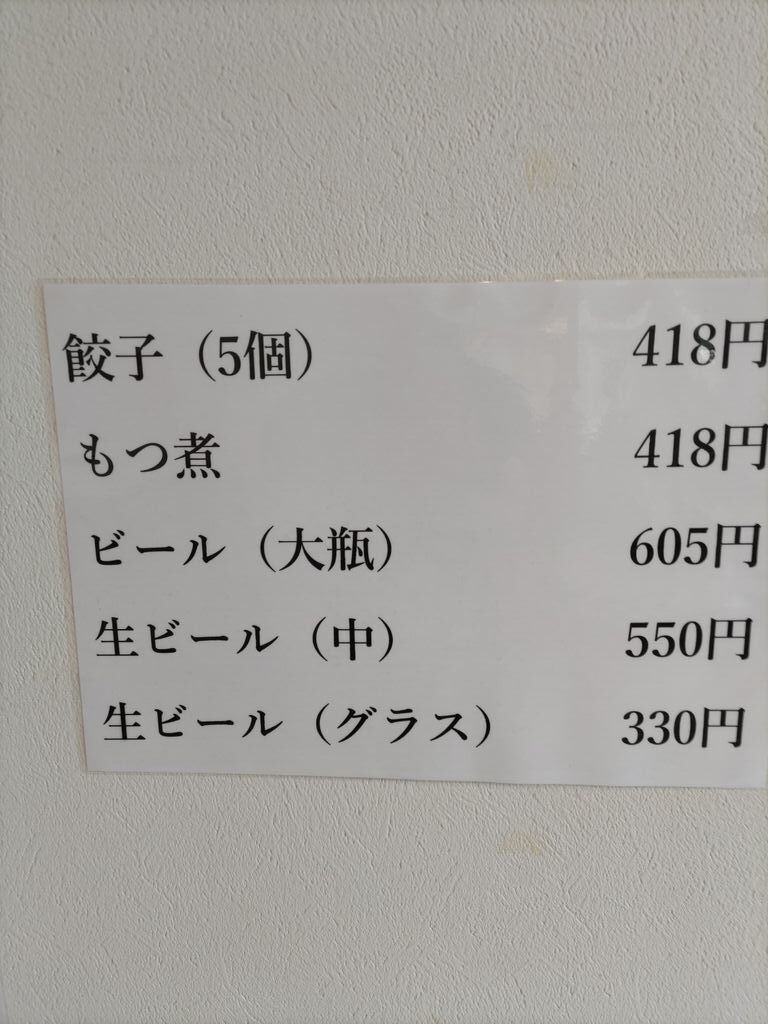 餃子（5個） 418円
もつ煮 418円
ビール（大瓶） 605円
生ビール（中） 550円
生ビール（グラス） 330円